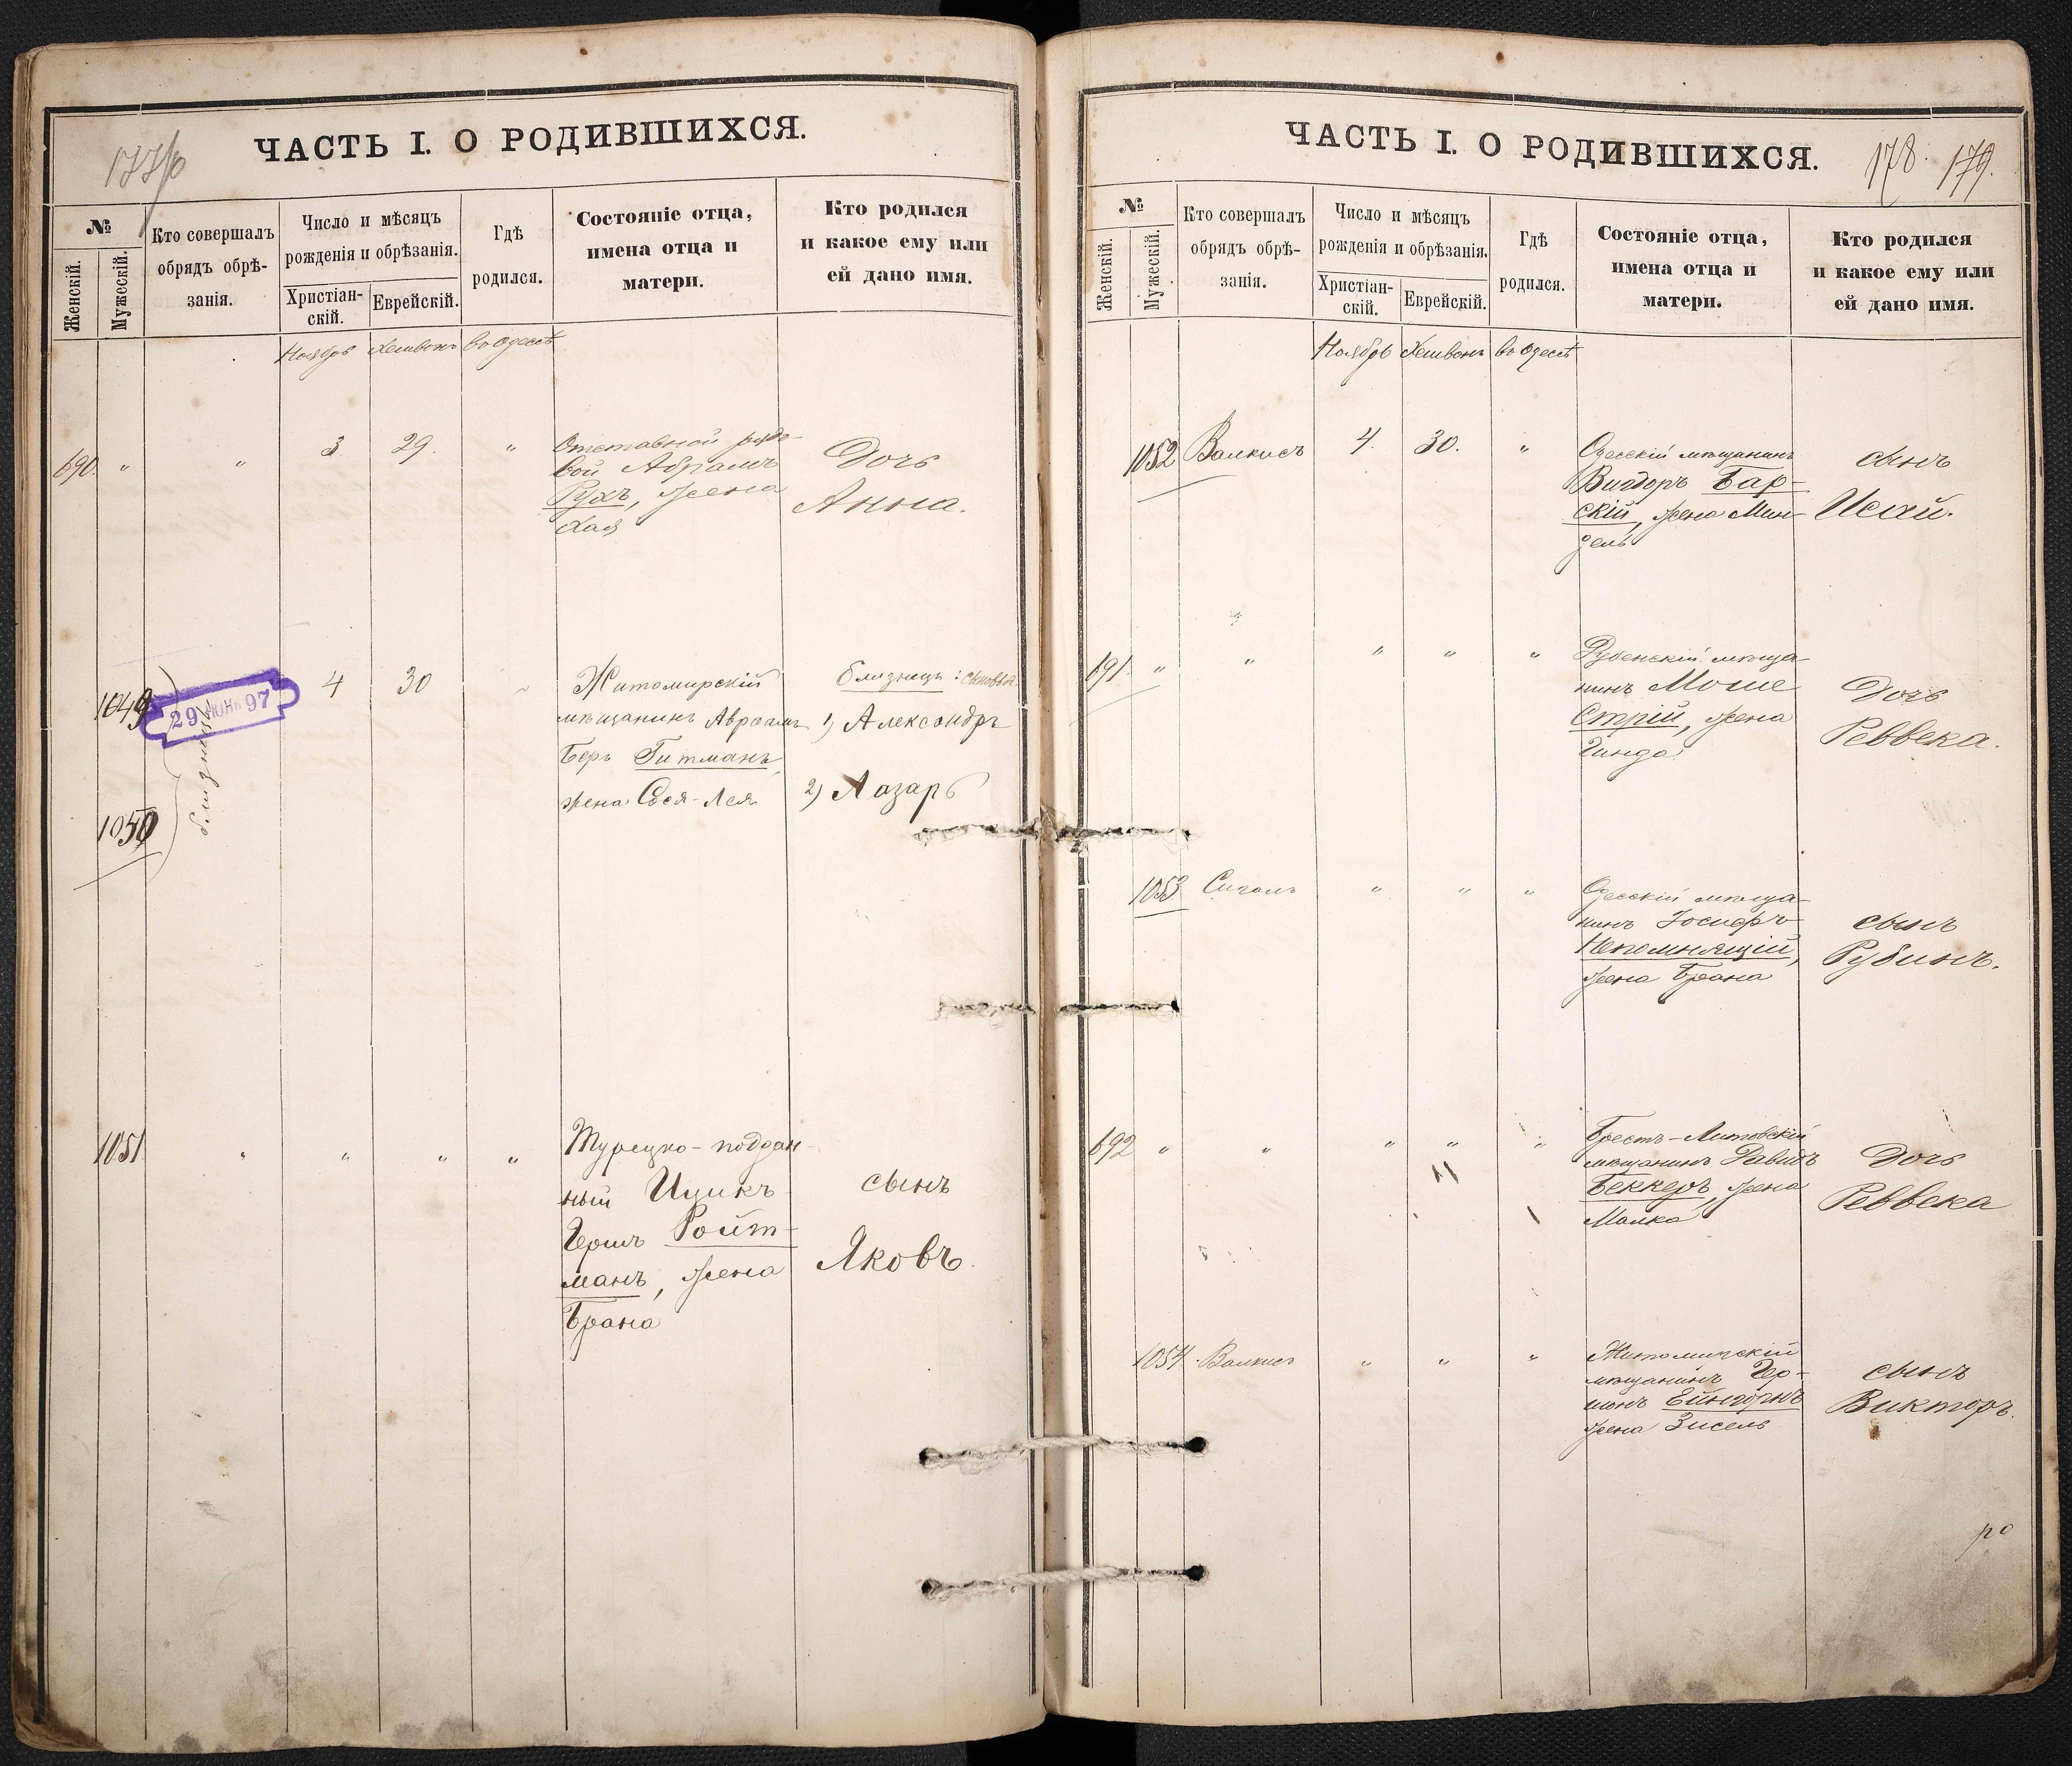 ЧАСТЬ I. О РОДИВШИХСЯ.
№
Женскій.
Мужескій.
Кто совершалъ
обрядъ обрѣ-
занія.
Число и мѣсяцъ
рожденія и обрѣзанія.
Христіан-
скій.
Еврейскій.
Гдѣ
родился.
Состояніе отца,
имена отца и
матери.
Кто родился
и какое ему или
ей дано имя.
Ноябрь Хешвонъ во Одессѣ
690. " " 3 29. "
Отставной рядо-
вой Абрамъ
Рухъ, жена
Хая
Дочь
Анна.
1049
29 ІЮН. 97
1050
близнецы
4 30 "
Житомирскій
мѣщанинъ Авраамъ
Беръ Гитманъ,
жена Сося-Лея
близнецы: сыновья
1) Александръ
2) Лазарь
1051 " " " "
Турецко-поддан-
ный Ицикъ
Гершъ Ройт-
манъ, жена
Брана
сынъ
Яковъ.
ЧАСТЬ I. О РОДИВШИХСЯ.
178. 179.
№
Женскій.
Мужескій.
Кто совершалъ
обрядъ обрѣ-
занія.
Число и мѣсяцъ
рожденія и обрѣзанія.
Христіан-
скій.
Еврейскій.
Гдѣ
родился.
Состояніе отца,
имена отца и
матери.
Кто родился
и какое ему или
ей дано имя.
Ноябрь Хешвонъ во Одессѣ
1052 Валкисъ 4. 30. "
Одесскій мѣщанинъ
Вигдоръ Бар-
скій, жена Мин-
дель
сынъ
Исай.
691. " " " " "
мѣща-
нинъ Моше
Стрій, жена
Гинда
Дочь
Реввека.
1053 Сигалъ " " "
Одесскій мѣща-
нинъ Іосифъ
Непомнящій,
жена Брана
сынъ
Рубинъ.
692 " " " " "
Брестъ-Литовскій
мѣщанинъ Давидъ
Беккеръ, жена
Малка
Дочь
Реввека
1054 Валкисъ " " "
Житомирскій
мѣщанинъ Гер-
шонъ
жена Зисель
сынъ
Викторъ.